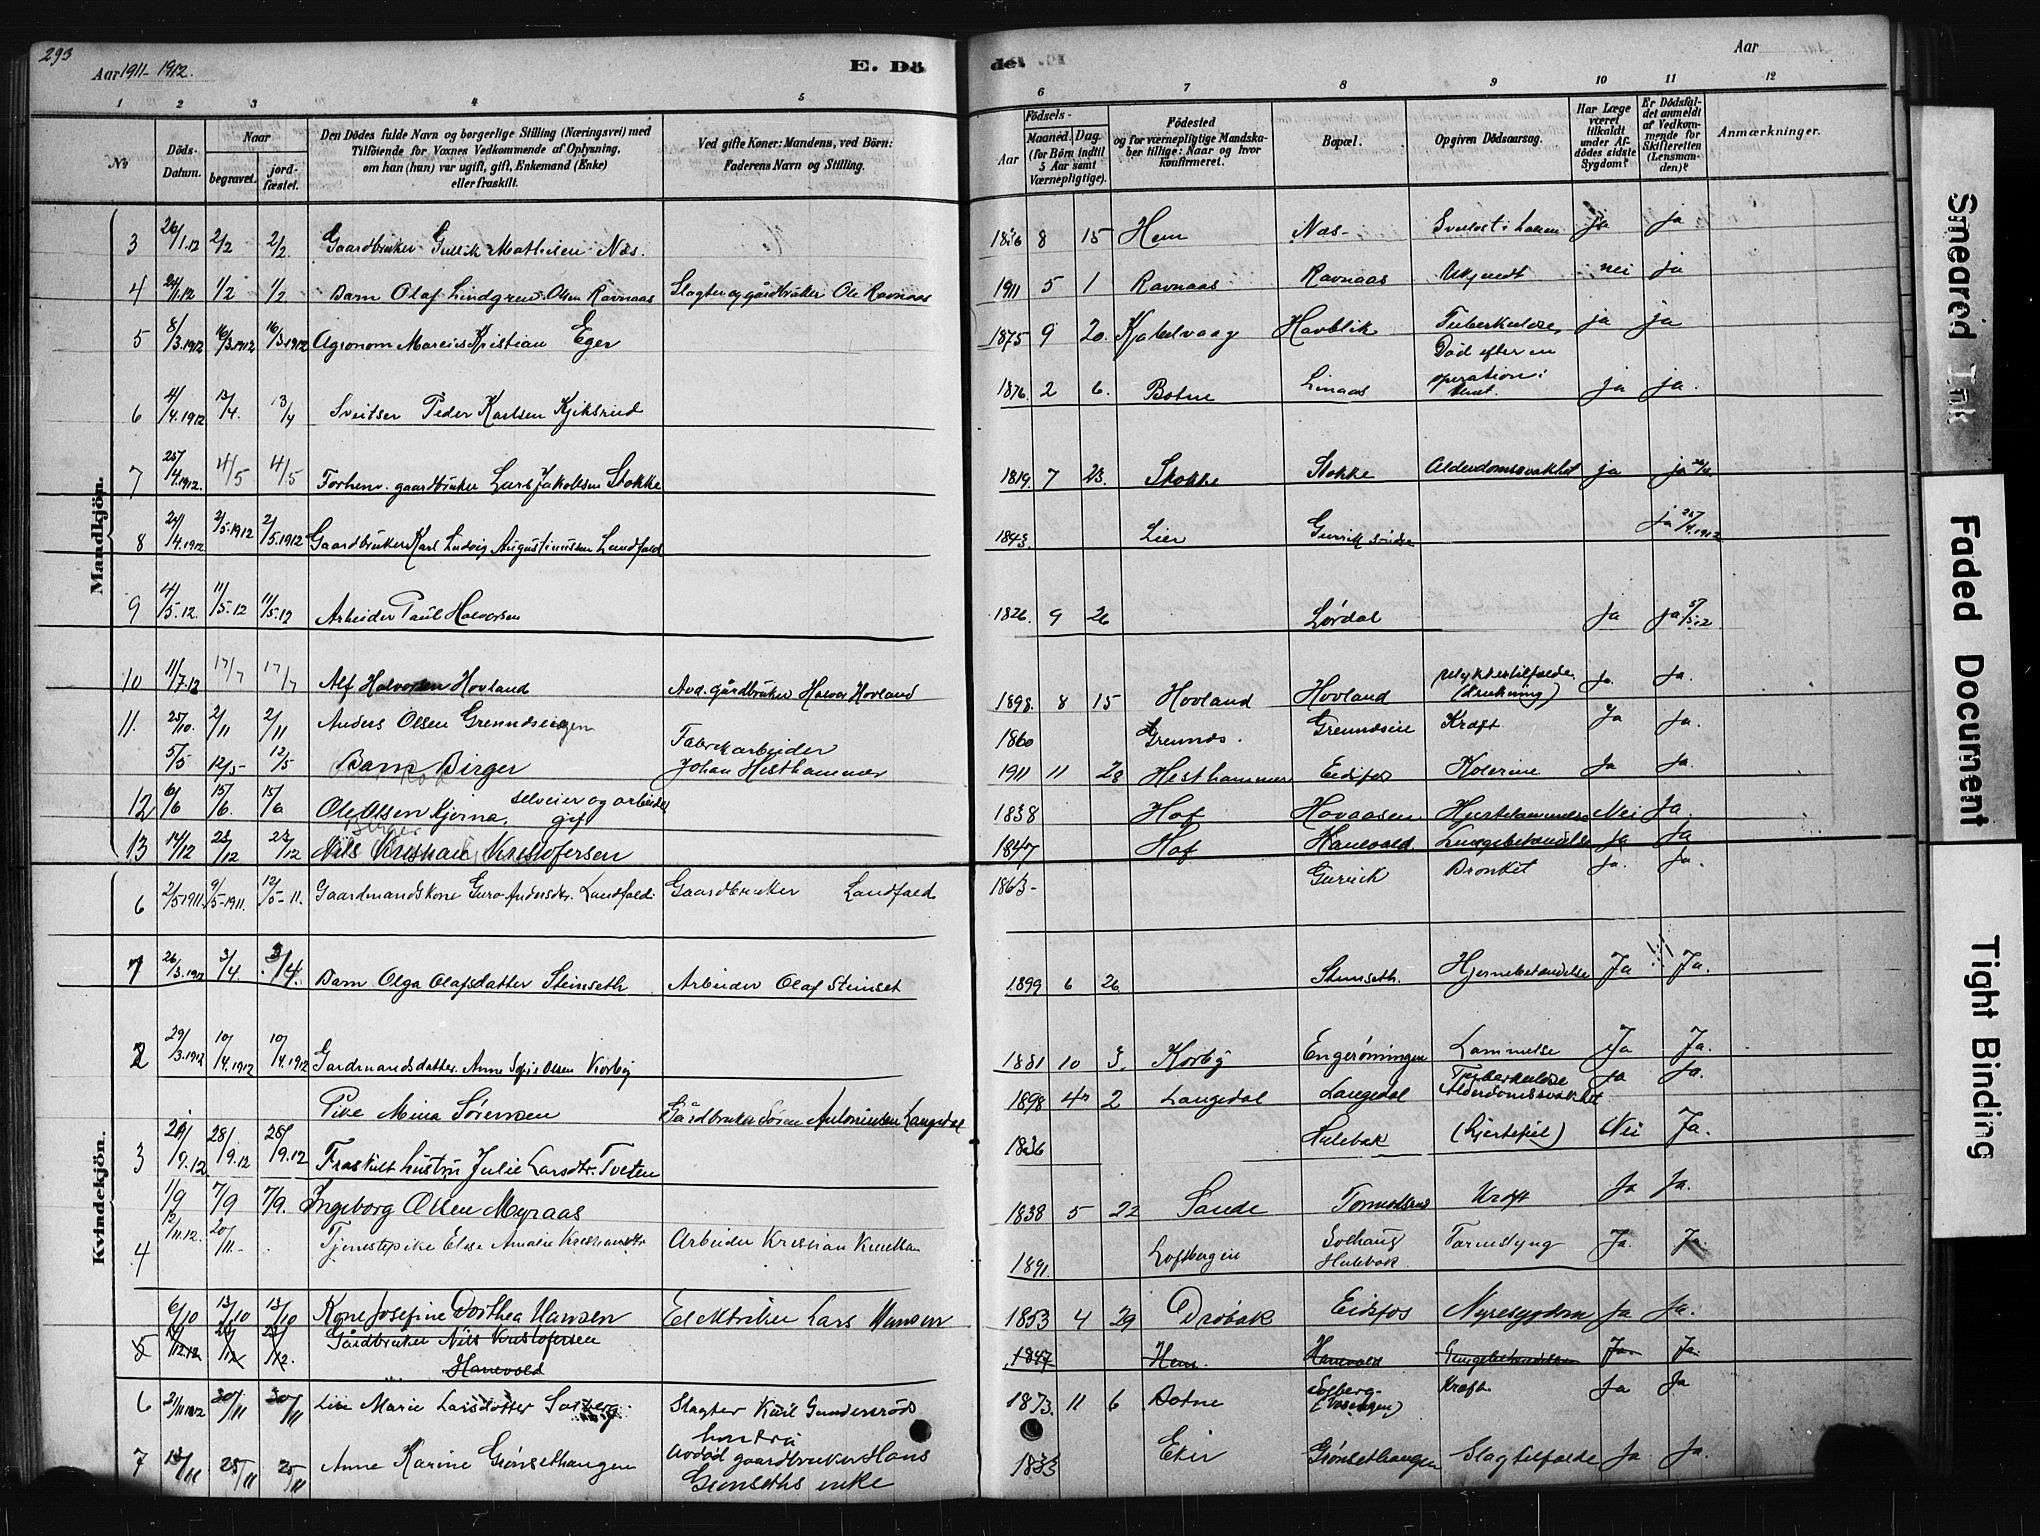 293
Aar 1911-1912.
E. Dö
de.
Aar
1 2 3 4 5 6 7 8 9 10 11 12
No
Döds-Datum.
Naar
begravet.
jord-fæstet.
Den Dödes fulde Navn og borgerlige Stilling (Næringsvei) med
Tilföiende for Voxnes Vedkommende af Oplysning,
om han (hun) var ugift, gift, Enkemand (Enke)
eller fraskilt.
Ved gifte Koner: Mandens, ved Börn:
Faderens Navn og Stilling.
Födsels-
Aar
Maaned. Dag.
(for Börn indtil
5 Aar samt
Værnepligtige).
Födested
og for værnepligtige Mandska-
ber tillige: Naar og hvor
konfirmeret.
Bopæl.
Opgiven Dödsaarsag.
Har Læge
været
tilkaldt
under Af-
dödes sidste
Sygdom?
Er Dödsfal-
det anmeldt
af Vedkom-
mende for
Skifteretten
(Lensman-
den)?
Anmærkninger.
Mandkjön.
3 26/1.12 2/2 2/2 Gaardbruker Gullik Mathisen Næs. 1836 8 15 Hem Næs ja ja
4 24/1.12 1/2 1/2 Barn Olaf Lindgren Olsen Ravnaas Slagter og gårdbruker Ole Ravnaas 1911 5 1 Ravnaas Ravnaas Ukjendt nei ja
5 8/3.1912 16/3.1912 16/3.1912 Agronom Marcius Kristian Eger 1875 9 20. Kabelvaag Havblik Tuberkulose ja ja
6 4/4.1912 13/4. 13/4 Sveitser Peder Karlsen Kjiksrud 1876 2 6. Botne Linaas Död efter en operation i ja ja.
7 25/4.1912. 4/5 4/5 Forhenv. gaardbruker Lars Jakobsen Stokke 1819. 7 23. Stokke Stokke Alderdomssvakhet ja ja
8 24/4.1912 2/5.1912 2/5.1912 Gaardbruker Karl Ludvig Augustinussen Landfald 1843. Lier ja 25/4.1912
9 4/5.12. 11/5.12 11/5.12 Arbeider Paul Halvorsen 1826. 9 26 Lørdal ja ja 5/5.12
10 11/7.12 17/7 17/7 Alf Halvorsen Hovland Avd. gårdbruker Halvor Hovland 1898. 8 15 Hovland Hovland Ulykkestilfælde (drukning) Ja. Ja.
11. 25/10. 2/11 2/11 Anders Olsen Grenndseiegen 1860 Grennds. Grenndseie Kræft Ja Ja.
5/5 12/5 12/5 Barn Birger Fabrikarbeider Johan Hesthammer 1911 11 28 Hesthammer Eidsfos Kolerine Ja Ja.
12 6/6 15/6. 15/6 Ole Olsen Kjorna, selveier og arbeider gift 1838 Hof Hovaasen Nei Ja
13 14/12 23/12 23/12 Nils Kristian Kristofersen 1847 Hof Hanevold Lungebetændelse Ja Ja
Kvindekjön.
6 2/5 1911. 9/5-1911. 12/5-11. Gaardmandskone Guro Andersdtr. Landfald. Gaardbruker Landfald 1863- Gurrik Bronkit Ja. Ja.
7 26/3.1912 3/4. 3/4. Barn Olga Olafsdatter Steinseth Arbeider Olaf Steinset 1899 6 26 Steinseth. Hjernebetændelse Ja Ja.
2 29/3.1912 10/4.1912 10/4.1912 Gardmandsdatter Anne Sofie Olsen Korby 1881 10 3. Korby Engerønningen Lammelse Ja Ja.
Pike Mina Sörensen Gårdbruker Sören Antoniussen Langedal 1898 4 2 Langedal Langedal Tuberkulose Ja Ja.
3 21/9.12 28/9.12 28/9.12 Fraskilt hustru Julie Larsdtr. Tveten 1836 Hulebak Alderdomssvakhet (hjertefeil) Nei Ja.
1/9 7/9 7/9. Ingeborg Olsen Myraas 1838 5 22 Sande Kræft Ja Ja.
4 12/11.12. 20/11. Tjenestepike Elise Amalie Kristiansdtr. Arbeider Kristian 1891. Loftbergeie Solhaug Hulebak Tarmslyng Ja. Ja.
6/10 13/10 13/10 Kone Josefine Dorthea Hansen Elektriker Lars Hansen 1853 4 29 Drøbak Eidsfos Nyresygdom Ja Ja.
5 14/12.12 23/12 23/12. Gårdbruker Nils Kristofersen Hanevold 1847 Hem. Hanevold Lungebetændelse Ja Ja.
6 21/11.1912 30/11 30/11 Line Marie Larsdatter Solberg. Slagter Karl Gundersröds hustru 1873. 11 6 Botne Solberg Kræft. Ja Ja
7 18/11 25/11 25/11 Anne Karine Grönsethaugen Avdød gaardbruker Hans Grönseths enke 1833 Eker Grönsethaugen Slagtilfælde Ja Ja.
Smeared Ink
Faded Document
Tight Binding